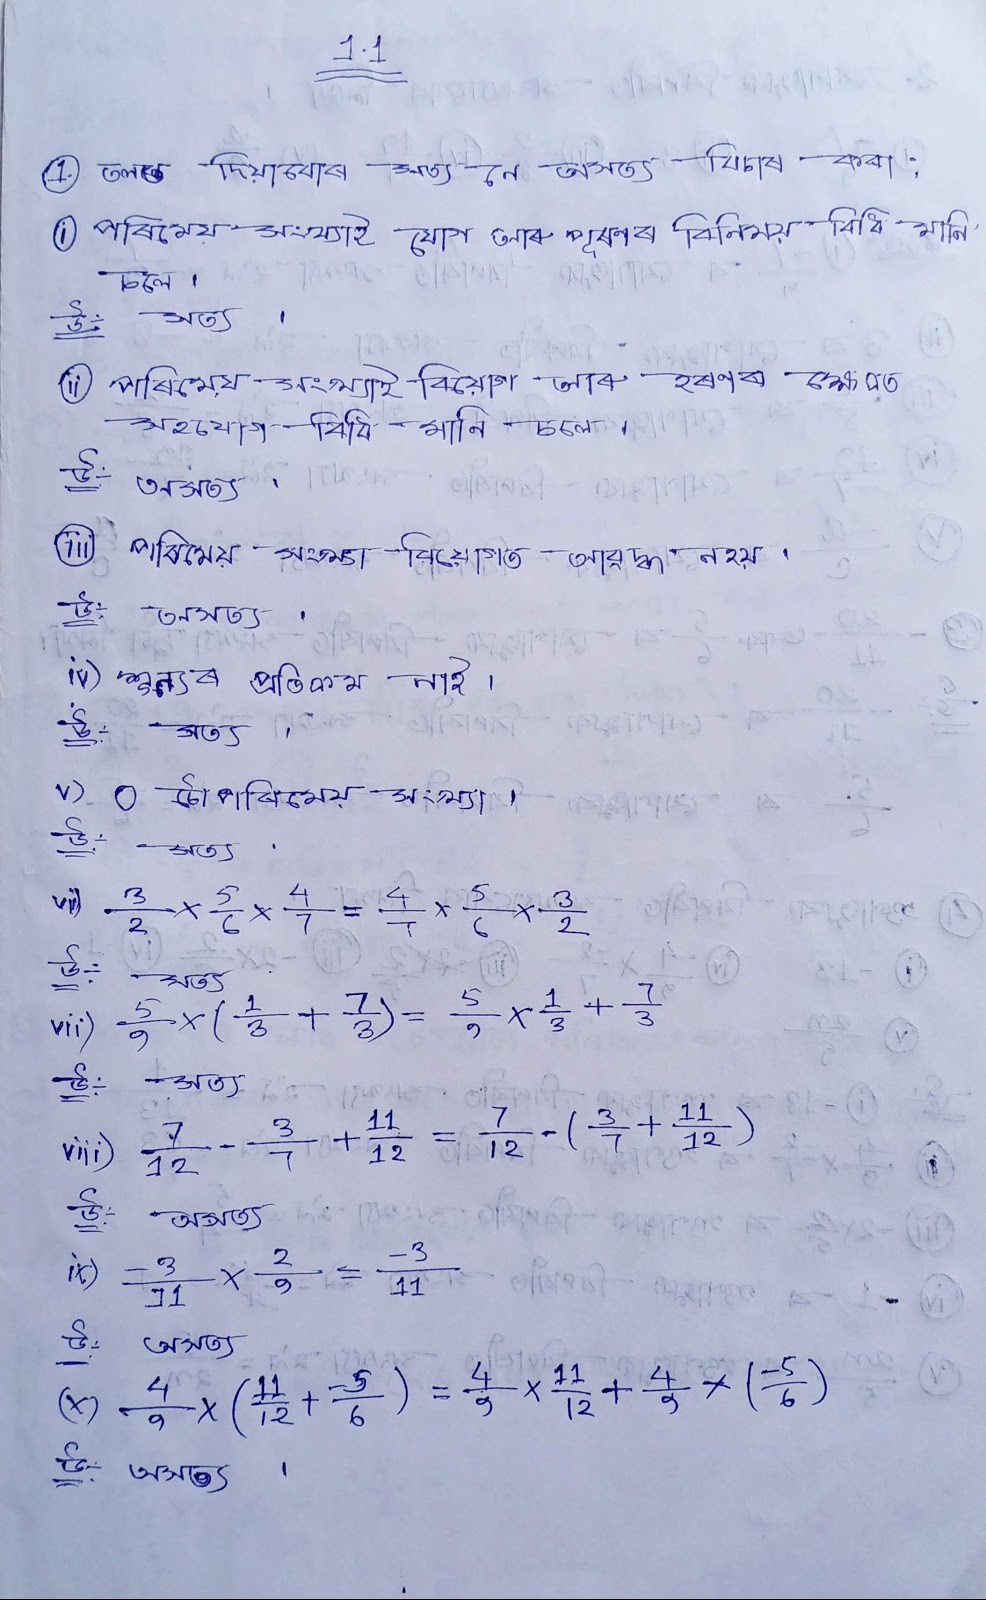 1.1
① তলত দিয়াবোৰ সত্য নে অসত্য বিচাৰ কৰা :
ⓘ পৰিমেয় সংখ্যাই যোগ আৰু পূৰণৰ বিনিময় বিধি মানি
চলে ।
উঃ সত্য ।
ⅱ পৰিমেয় সংখ্যাই বিয়োগ আৰু হৰণৰ ক্ষেত্ৰত
সহযোগ বিধি মানি চলে ।
উঃ অসত্য ।
ⅲ পৰিমেয় সংখ্যা বিয়োগত আবদ্ধ নহয় ।
উঃ অসত্য ।
iv) শূন্যৰ প্ৰতিক্ৰম নাই ।
উঃ সত্য ।
v) 0 টো পৰিমেয় সংখ্যা ।
উঃ সত্য ।
vi) 3/2 × 5/6 × 4/7 = 4/7 × 5/6 × 3/2
উঃ সত্য
vii) 5/9 × (1/3 + 7/3) = 5/9 × 1/3 + 7/3
উঃ সত্য
viii) 7/12 - 3/7 + 11/12 = 7/12 - (3/7 + 11/12)
উঃ অসত্য
ix) -3/11 × 2/9 = -3/11
উঃ অসত্য
(x) 4/9 × (11/12 + -5/6) = 4/9 × 11/12 + 4/9 × (-5/6)
উঃ অসত্য ।